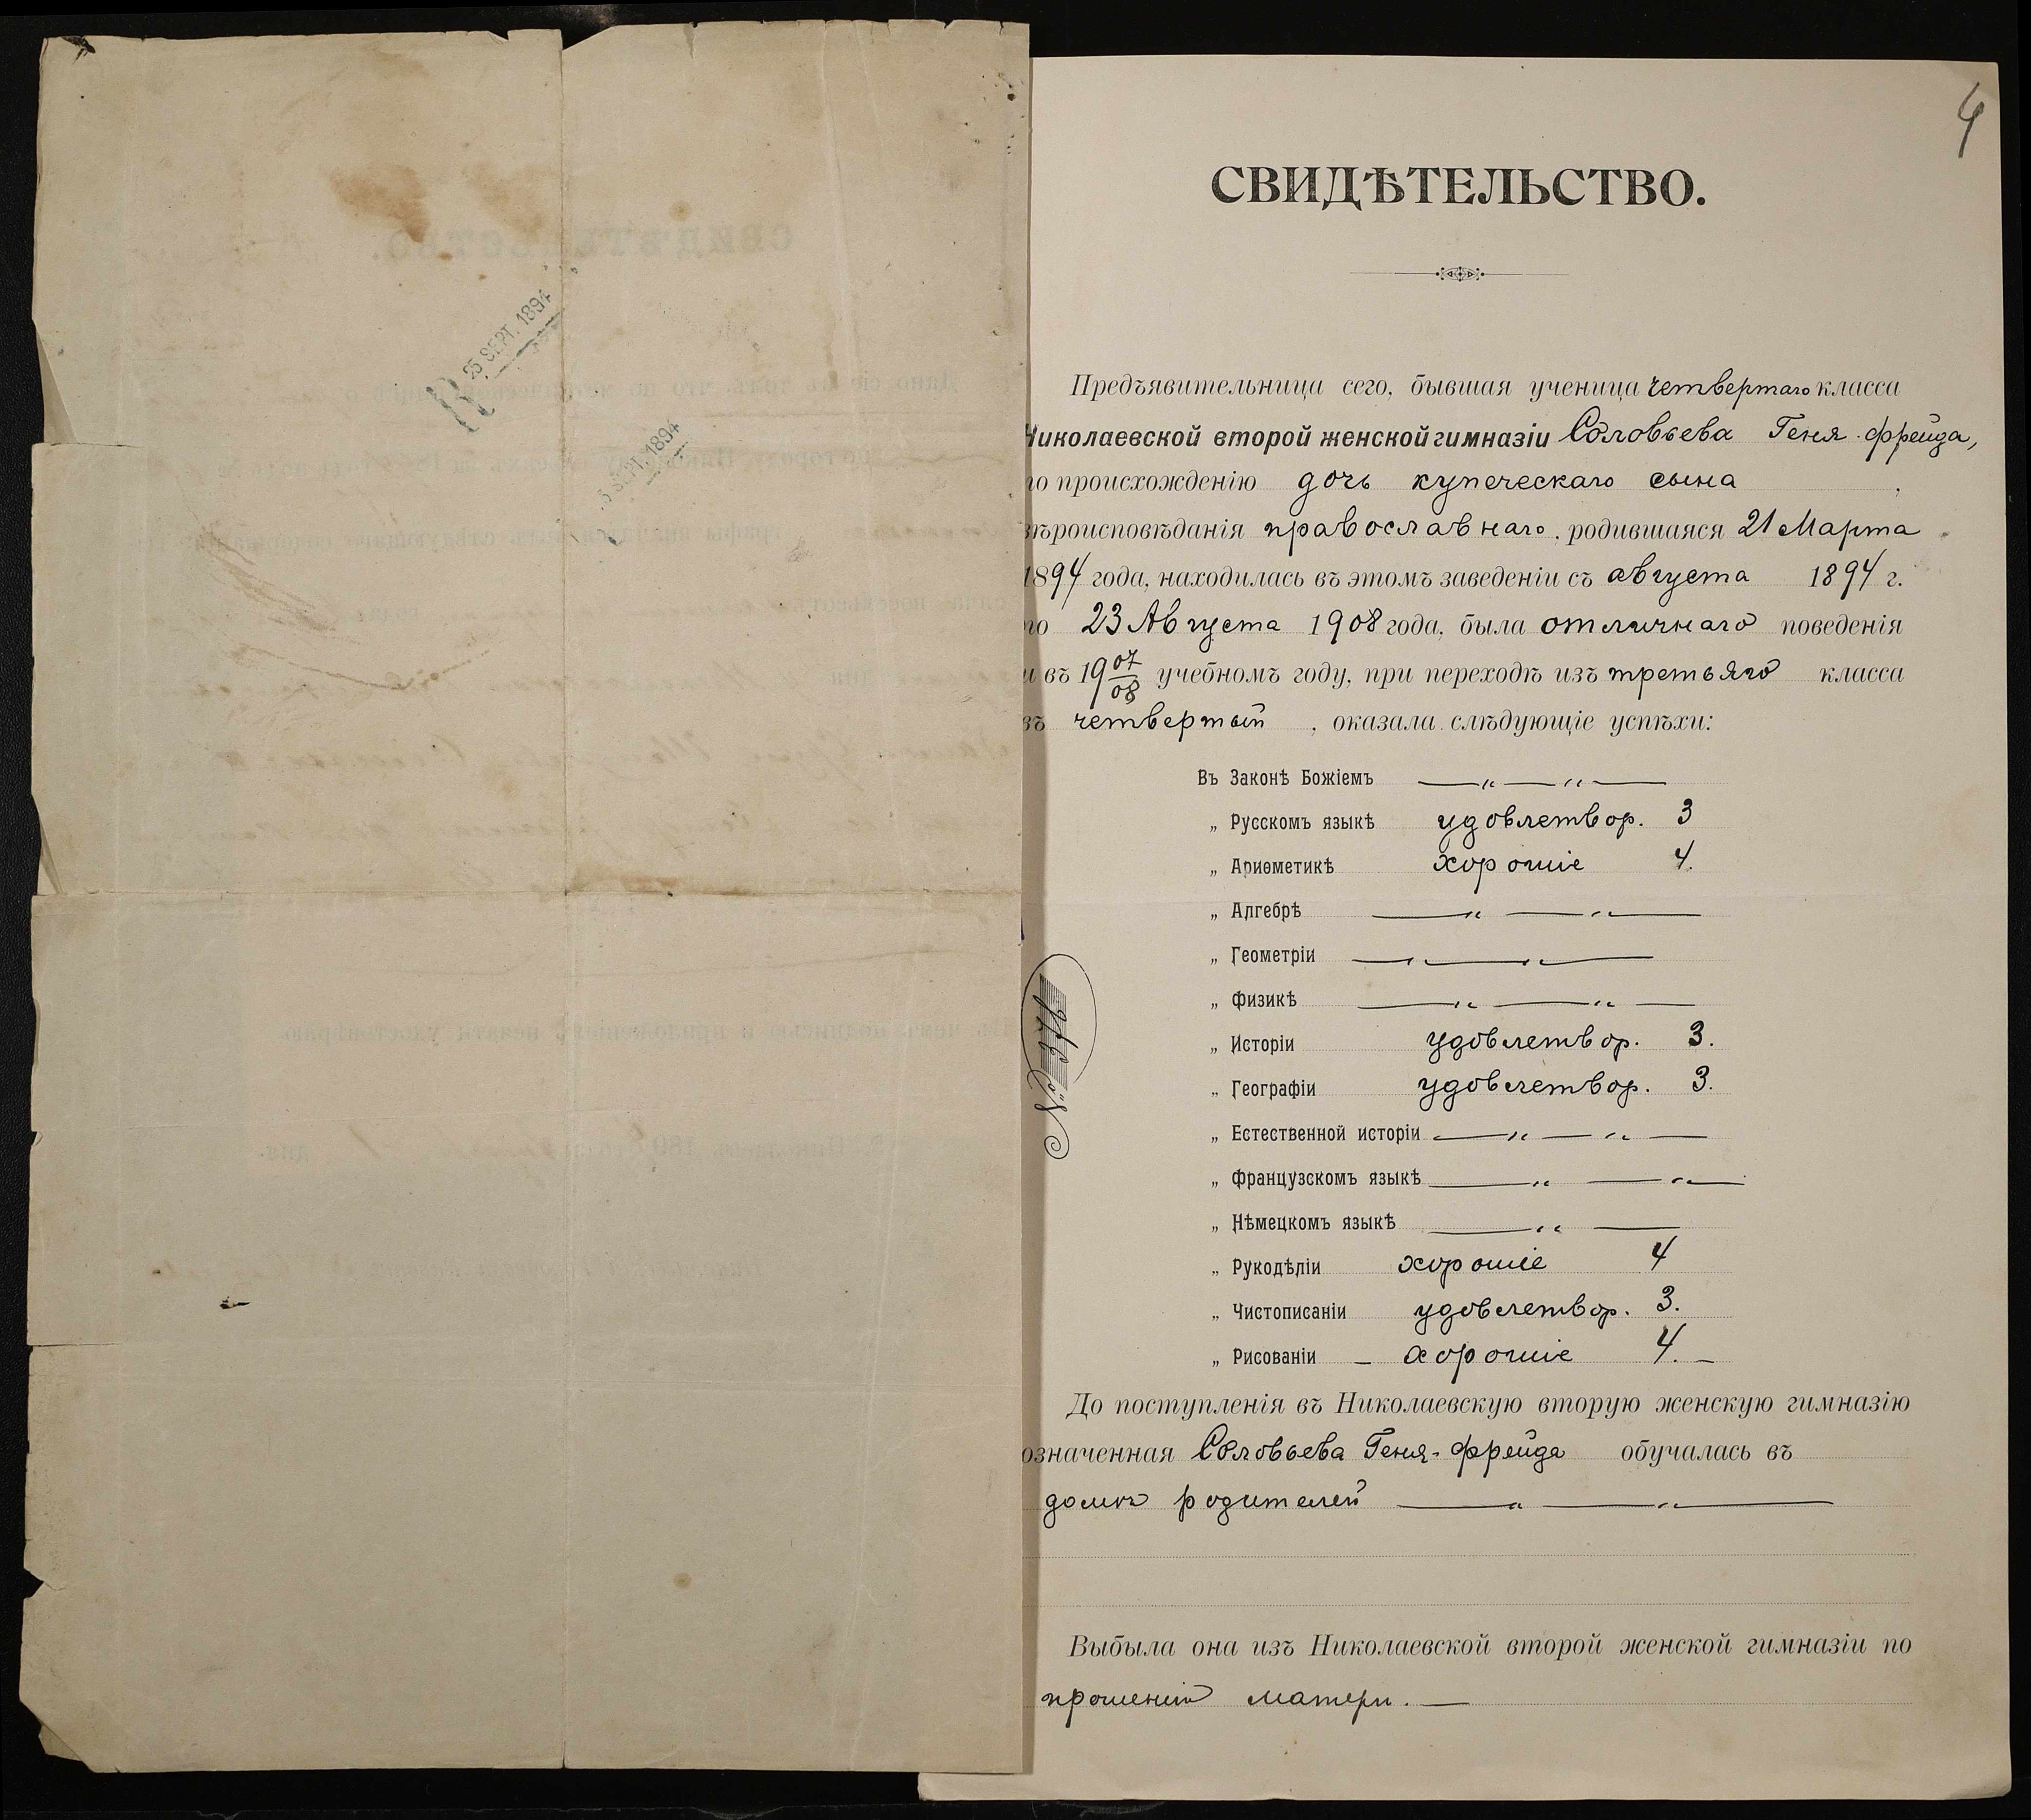 4
СВИДѢТЕЛЬСТВО.
25 SEPT. 1894
SEPT. 1894
Предъявительница сего, бывшая ученица четвертаго класса
Николаевской второй женской гимназіи Соловьева Геня-Фрейда,
по происхожденію дочь купеческаго сына ,
вѣроисповѣданія православнаго, родившаяся 21 Марта
1894 года, находилась въ этомъ заведеніи съ августа 1894 г.
по 23 Августа 1908 года, была отличнаго поведенія
и въ 19 07/08 учебномъ году, при переходѣ изъ третьяго класса
въ четвертый , оказала слѣдующіе успѣхи:
Въ Законѣ Божіемъ — „ — „ —
„ Русскомъ языкѣ удовлетвор. 3
„ Ариѳметикѣ хорошіе 4.
„ Алгебрѣ — „ — „ —
„ Геометріи — „ — „ —
„ Физикѣ — „ — „ —
„ Исторіи удовлетвор. 3.
„ Географіи удовлетвор. 3.
„ Естественной исторіи — „ — „ —
„ Французскомъ языкѣ — „ — „ —
„ Нѣмецкомъ языкѣ — „ —
„ Рукодѣліи хорошіе 4
„ Чистописаніи удовлетвор. 3.
„ Рисованіи — хорошіе 4. —
№
До поступленія въ Николаевскую вторую женскую гимназію
означенная Соловьева Геня-Фрейда обучалась въ
домѣ родителей — „ — „ —
Выбыла она изъ Николаевской второй женской гимназіи по
прошенію матери. —